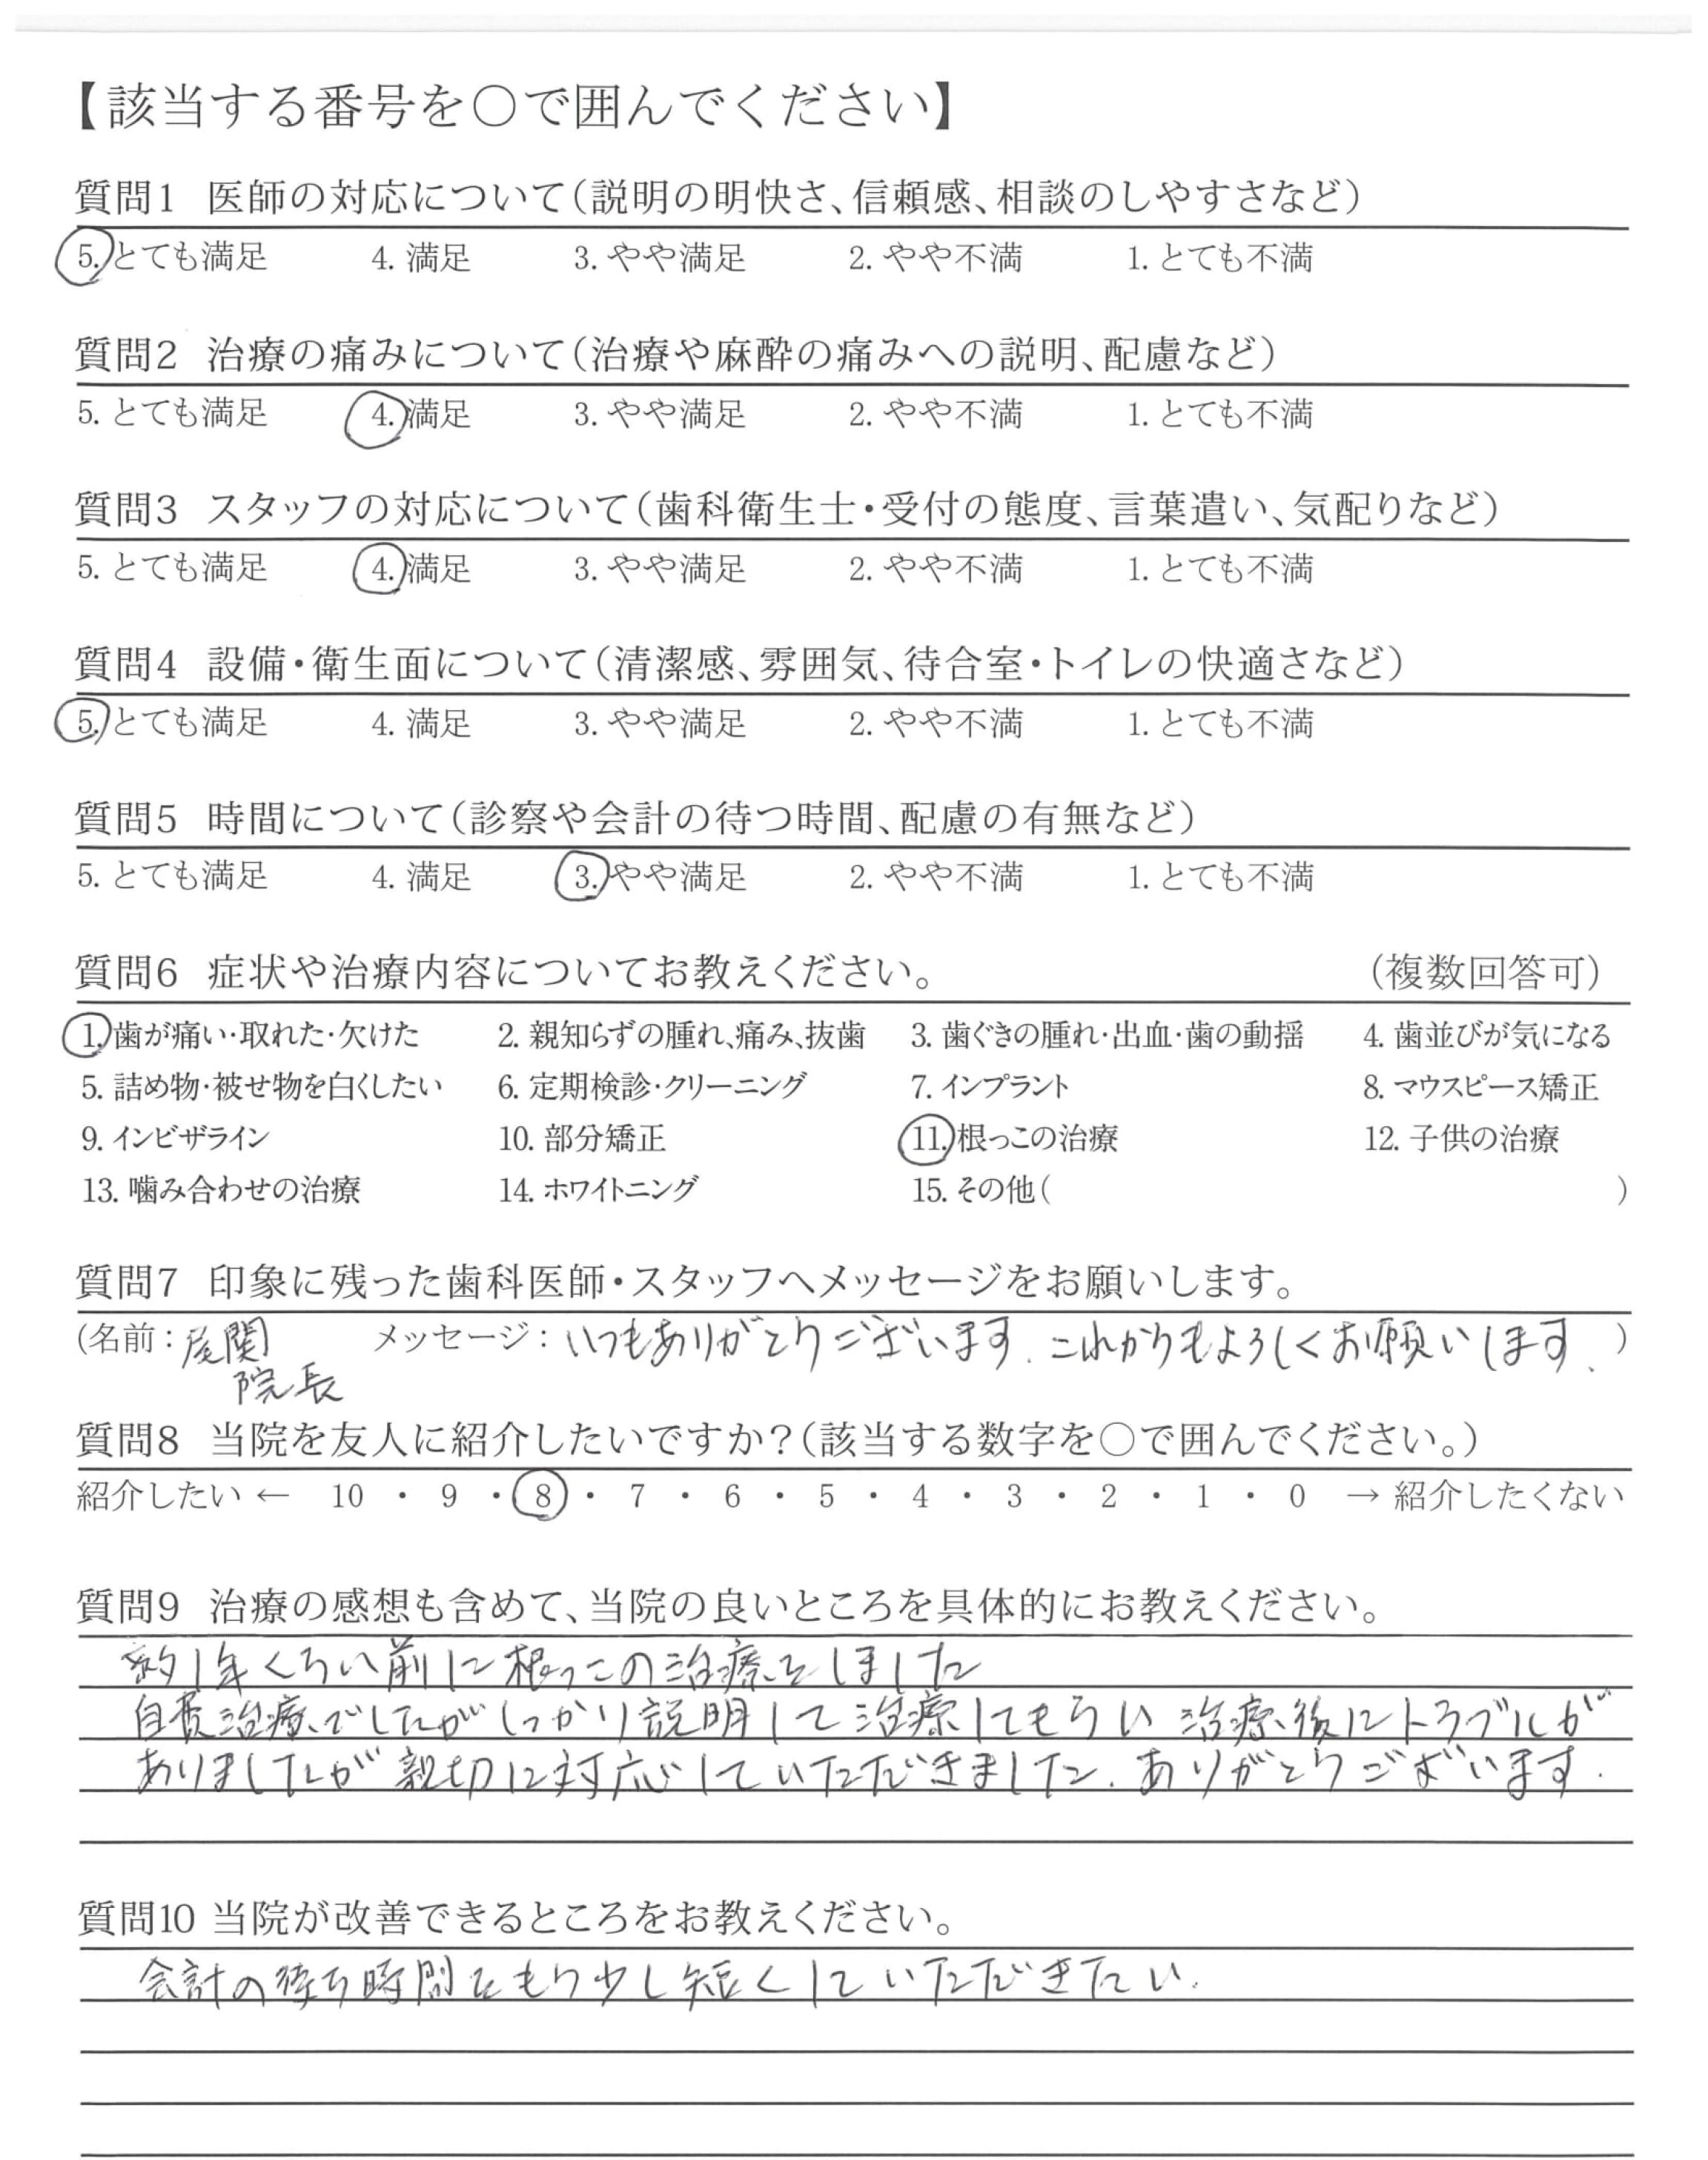 【該当する番号を○で囲んでください】
質問1 医師の対応について(説明の明快さ、信頼感、相談のしやすさなど)
5. とても満足 4. 満足 3. やや満足 2. やや不満 1. とても不満
質問2 治療の痛みについて(治療や麻酔の痛みへの説明、配慮など)
5. とても満足 4. 満足 3. やや満足 2. やや不満 1. とても不満
質問3 スタッフの対応について(歯科衛生士・受付の態度、言葉遣い、気配りなど)
5. とても満足 4. 満足 3. やや満足 2. やや不満 1. とても不満
質問4 設備・衛生面について(清潔感、雰囲気、待合室・トイレの快適さなど)
5. とても満足 4. 満足 3. やや満足 2. やや不満 1. とても不満
質問5 時間について(診察や会計の待つ時間、配慮の有無など)
5. とても満足 4. 満足 3. やや満足 2. やや不満 1. とても不満
質問6 症状や治療内容についてお教えください。 (複数回答可)
1. 歯が痛い・取れた・欠けた 2. 親知らずの腫れ、痛み、抜歯 3. 歯ぐきの腫れ・出血・歯の動揺 4. 歯並びが気になる
5. 詰め物・被せ物を白くしたい 6. 定期検診・クリーニング 7. インプラント 8. マウスピース矯正
9. インビザライン 10. 部分矯正 11. 根っこの治療 12. 子供の治療
13. 噛み合わせの治療 14. ホワイトニング 15. その他( )
質問7 印象に残った歯科医師・スタッフへメッセージをお願いします。
(名前:尾関 メッセージ:いつもありがとうございます. これからもよろしくお願いします、)
院長
質問8 当院を友人に紹介したいですか?(該当する数字を○で囲んでください。)
紹介したい ← 10 ・ 9 ・ 8 ・ 7 ・ 6 ・ 5 ・ 4 ・ 3 ・ 2 ・ 1 ・ 0 → 紹介したくない
質問9 治療の感想も含めて、当院の良いところを具体的にお教えください。
約1年くらい前に根っこの治療をしました
自費治療でしたがしっかり説明して治療してもらい 治療後にトラブルが
ありましたが親切に対応していただきました. ありがとうございます.
質問10 当院が改善できるところをお教えください。
会計の待ち時間をもう少し短くしていただきたい.